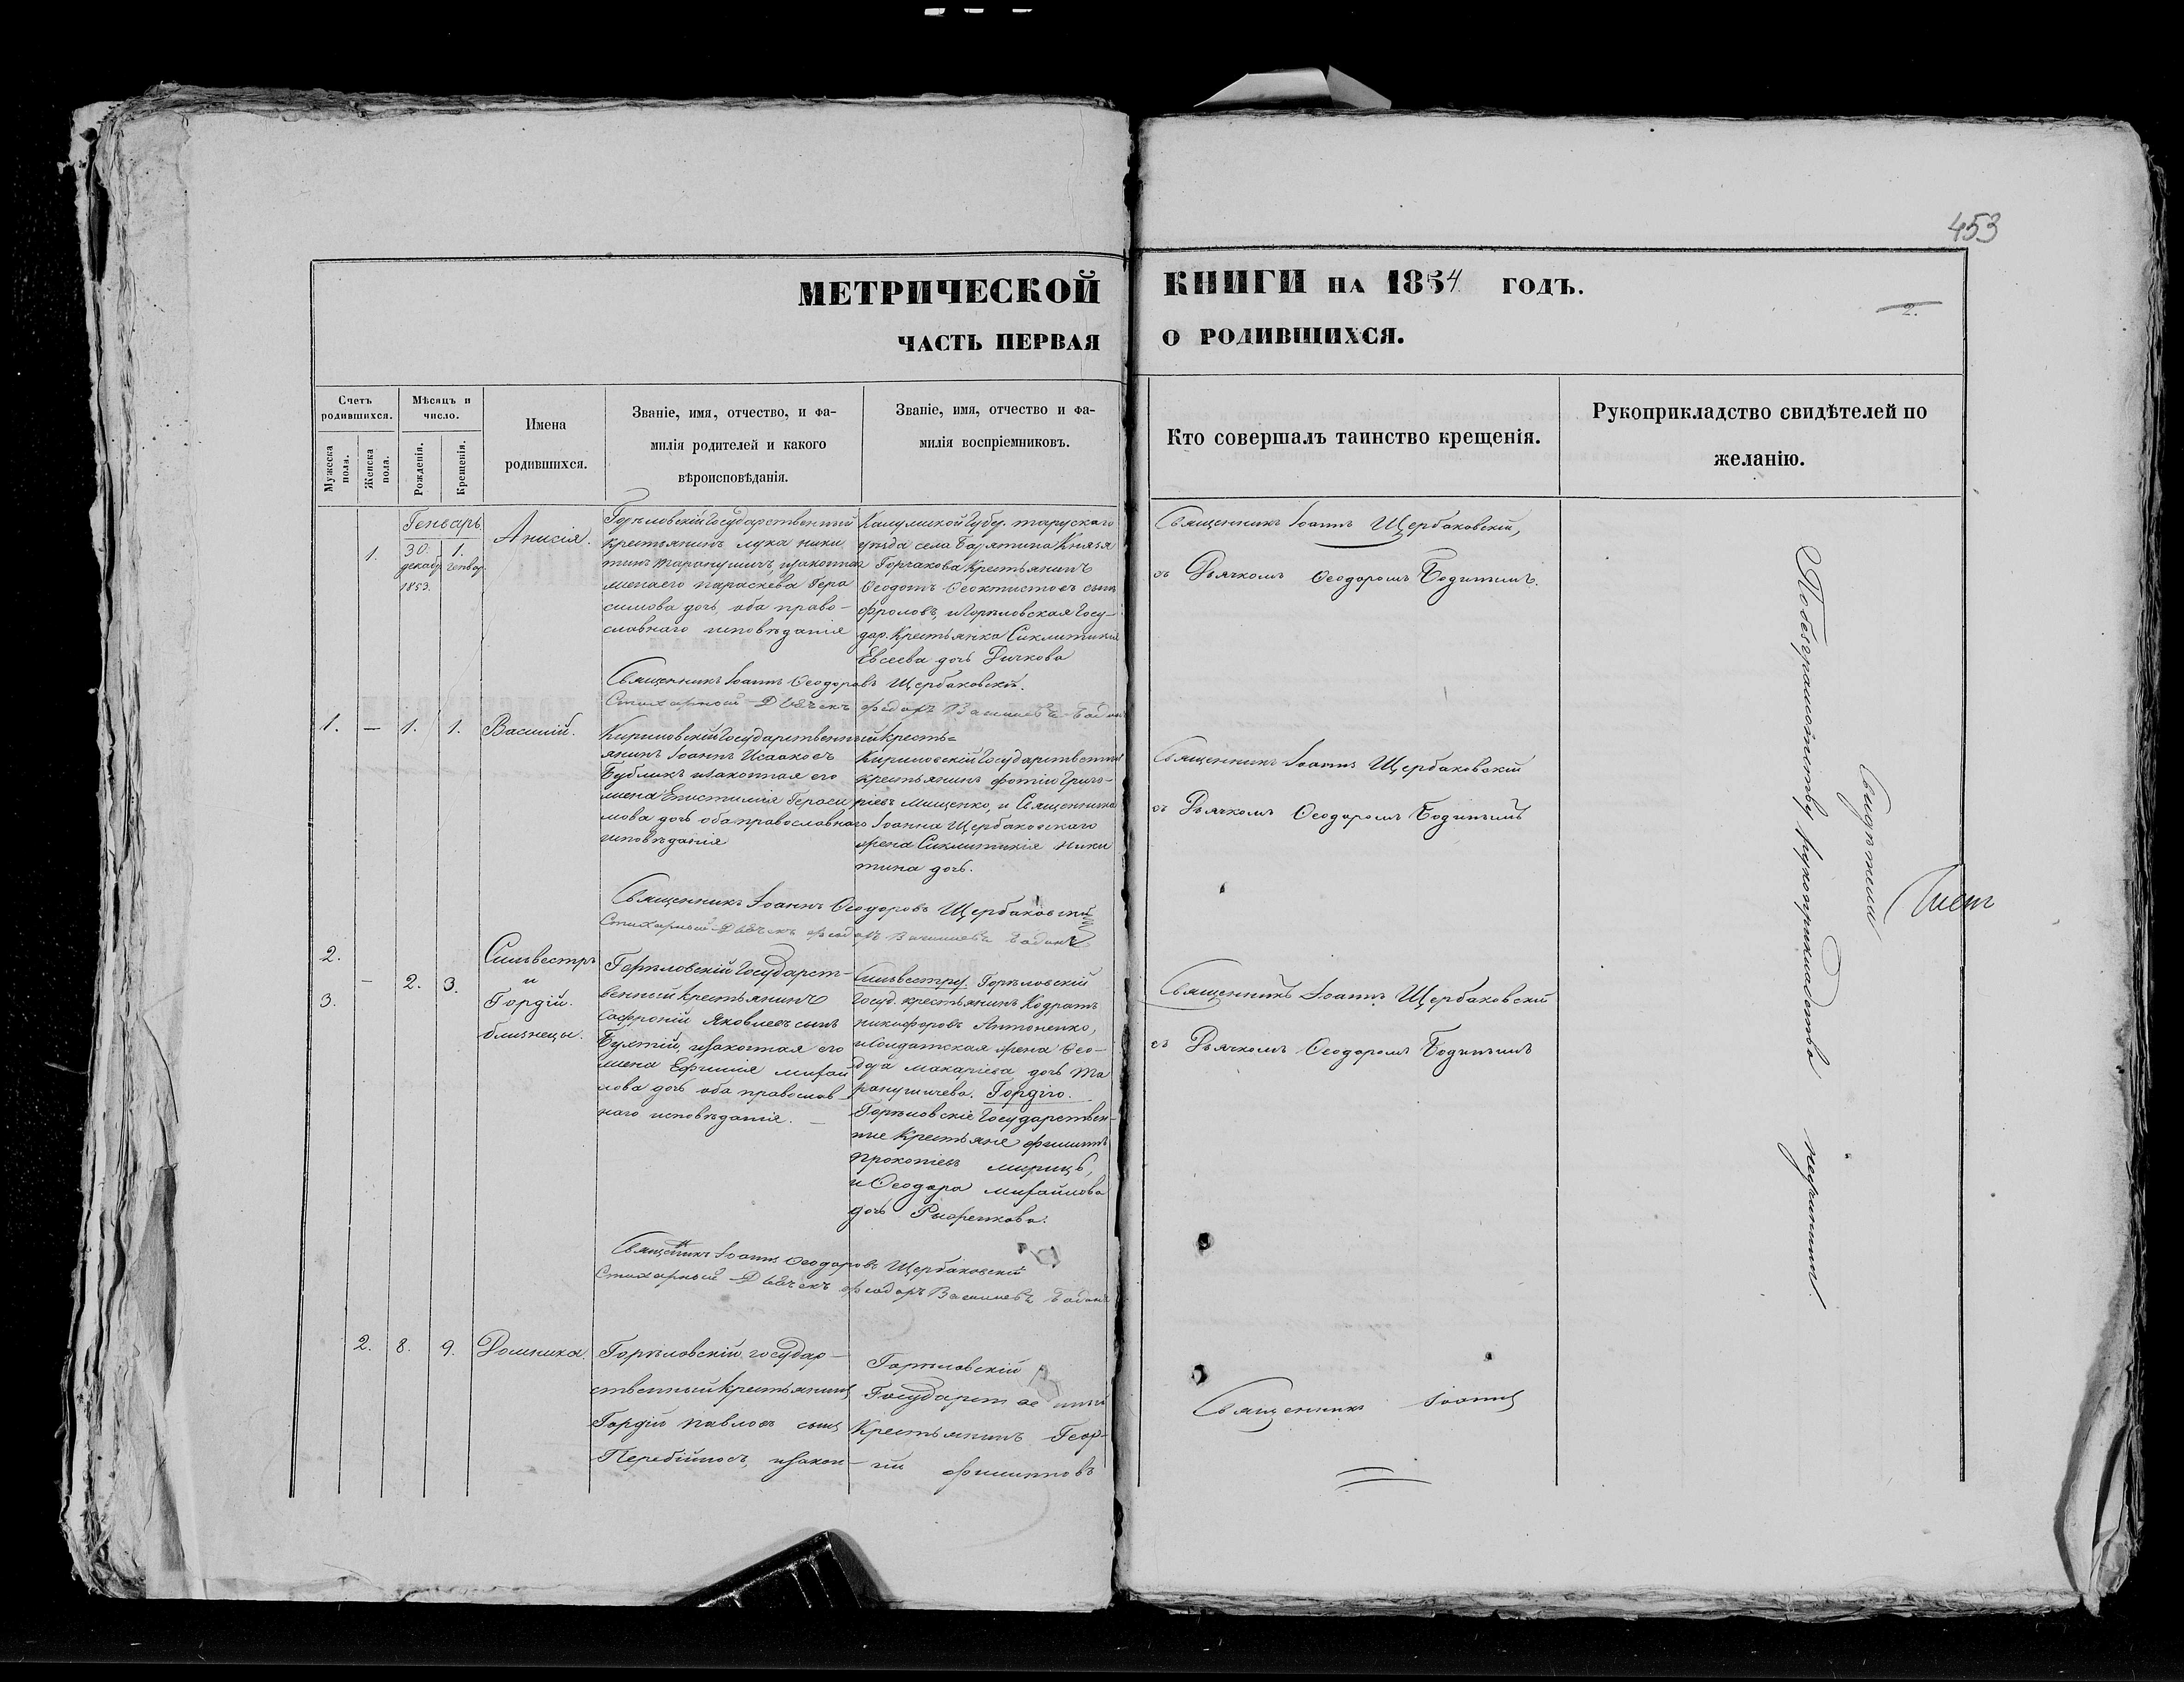 453
МЕТРИЧЕСКОЙ КНИГИ НА 1854 ГОДЪ.
2.
ЧАСТЬ ПЕРВАЯ О РОДИВШИХСЯ.
Счетъ родившихся.
Мужеска пола.
Женска пола.
Мѣсяцъ и число.
Рожденія.
Крещенія.
Имена родившихся.
Званіе, имя, отчество, и фа-
милія родителей и какого
вѣроисповѣданія.
Званіе, имя, отчество и фа-
милія воспріемниковъ.
Кто совершалъ таинство крещенія.
Рукоприкладство свидѣтелей по
желанію.
Генварь
1.
30. декабр. 1853.
1. генвар.
Анисія.
Горѣловскій Государственный
крестьянинъ лука ники
тинъ Таранушичъ, изаконная
жена его параскева Гера
симова дочь, оба право-
славнаго исповѣданія
уѣзда села Барятина Князя
Горчакова Крестьянинъ
Ѳеодотъ Ѳеоктистовъ сынъ
фроловъ, и Горѣловская Госу-
дар. Крестьянка Сиклитикия
Евсеева дочь
Священникъ Іоаннъ Щербаковскій,
съ Дьячкомъ Ѳеодоромъ
Священникъ Іоаннъ Ѳеодоровъ Щербаковскій.
Стихарный Дьячекъ
1. — 1. 1.
Василій.
Кириловскій Государственный кресть=
янинъ Іоаннъ Исааковъ
Бубликъ изаконная его
жена Епистимія Гераси
мова дочь оба православнаго
исповѣданія
Кириловскій Государственный
крестьянинъ фотій Григо-
ріевъ Мищенко, и Священника
Іоанна Щербаковскаго
жена Сиклитикія Ники
тина дочь.
Священникъ Іоаннъ Щербаковскій
съ Дьячкомъ Ѳеодоромъ
Священникъ Іоаннъ Ѳеодоровъ Щербаковскій
Стихарный Дьячекъ
2.
3.
— 2. 3.
Сильвестръ
и
Гордій.
близнецы.
Горѣловскій Государст-
венный крестьянинъ
Софроній Яковлевъ сынъ
изаконная его
жена Ефимія михаи
лова дочь оба православ-
наго исповѣданія. —
Сильвестру. Горѣловскій
Госуд. крестьянинъ Кодратъ
никифоровъ Антоненко,
и Солдатская жена Ѳео-
дора макаріева дочь Та
ранушичева. Гордію.
Горѣловскіе Государствен-
ные Крестьяне филиппъ
прокопіевъ
и Ѳеодора михайлова
дочь
Священникъ Іоаннъ Щербаковскій
съ Дьячкомъ Ѳеодоромъ
Священникъ Іоаннъ Ѳеодоровъ Щербаковскій
Стихарный Дьячекъ
2. 8. 9.
Домника.
Горѣловскій государ-
ственный крестьянинъ
Гордій павловъ сынъ
изакон-
Горѣловскій
Государственный
Крестьянинъ Геор-
гій филипповъ
Священникъ Іоаннъ
По безграмотству рукоприкладства
Свидѣтели